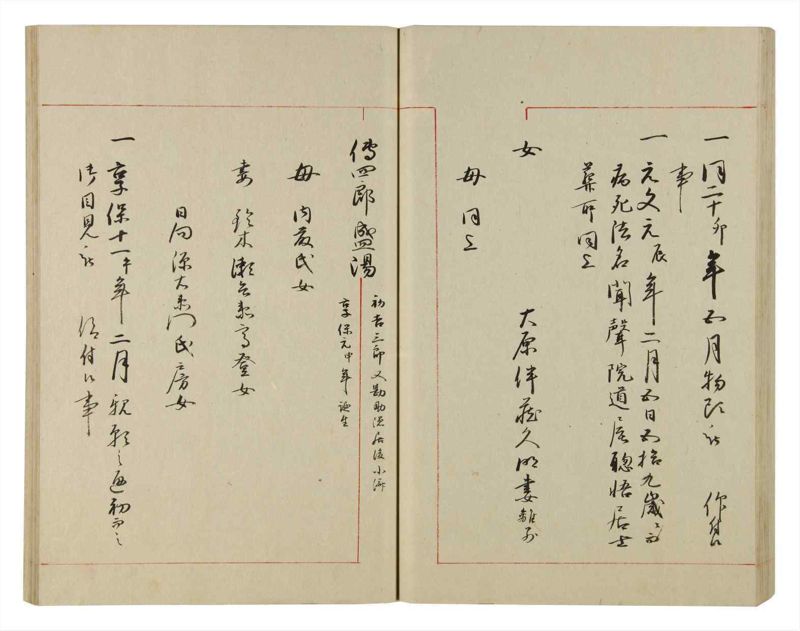 一同二十卯年五月物頭被 仰付候
事
一元文元辰年二月五日五拾九歳ニ而
病死法名聞聲院道居聰悟居士
葬所同上
女
大原伴蔵久明妻離別
母同上
傳四郎盛湯
初吉三郎又勘助
享保元申年誕生
母 内蔵氏女
妻 鈴木瀬兵衛高登女
日向源太左衛門氏房女
一享保十一午年二月親願之通初而之
御目見被 仰付候事